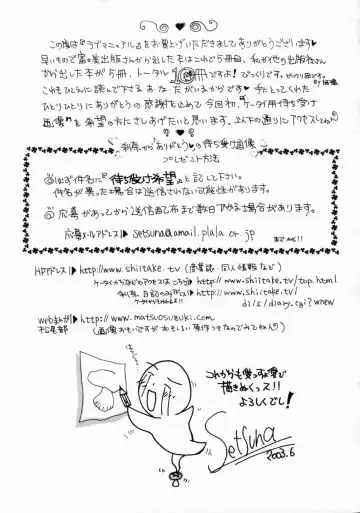 この度は『ラブマニュアル』をお買上げいただきましてありがとうございます♥
早いもので富士美出版さんから出した本はこれで5冊目、私が他の出版社さん
から出した本が5冊、トータル10冊ですよ!びっくりです。
これもひとえに読んで下さるあなたがいるからです♥手にとってくれた
ひとりひとりにありがとうの感謝を込めて今回初、"ケータイ用待ち受け
画像"を希望の方にさしあげたいと思います。ぷんの通りにアクセスしてね
ありがとう♥の待ち受け画像
プレゼント方法
①必ず件名に"待ち受け希望"と記して下さい。
件名が異った場合は送信されない可能性があります。
②応募があってから送信配布まで数日かかる場合があります。
応募メールアドレス▶setsuna@amail.plala.or.jp
まで
HPアドレス▶http://www.shiitake.tv(商業誌・同人情報など)
ケータイからなどのアクセスはこちら▶http://www.shiitake.tv/top.html
日記の▶http://www.shiitake.tv/
di/s/diary.cgi?wnew
webまんが▶http://www.matsuosuzuki.com
松尾部
(画像おもいですがおもしろい原作つきなのでみてねん)
これからも愛っす愛で
描きぬくっス!!
よろしくでし!
Setsuna
2003.6